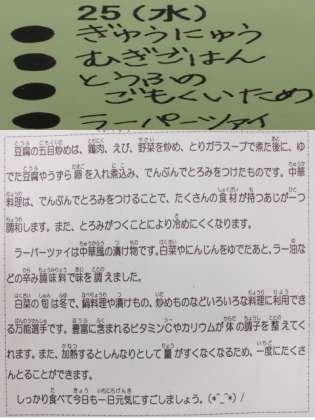 25(水)
ぎゅうにゅう
むぎごはん
とうふの
ごもくいため
ラーパーツァイ
豆腐の五目炒めは、鶏肉、えび、野菜を炒め、とりガラスープで煮た後に、ゆ
でた豆腐やうずら卵を入れ煮込み、でんぷんでとろみをつけたものです。中華
料理は、でんぷんでとろみをつけることで、たくさんの食材が持つあじが一つ
調和します。また、とろみがつくことにより冷めにくくなります。
ラーパーツァイは中華風の漬け物です。白菜やにんじんをゆでたあと、ラー油な
どの辛み調味料で味を調えました。
白菜の旬は冬で、鍋料理や漬けもの、炒めものなどいろいろな料理に利用でき
る万能選手です。豊富に含まれるビタミンCやカリウムが体の調子を整えてく
れます。また、加熱するとしんなりとして量がすくなくなるため、一度にたくさ
んとることができます。
しっかり食べて今日も一日元気にすごしましょう。(*^_^*)/